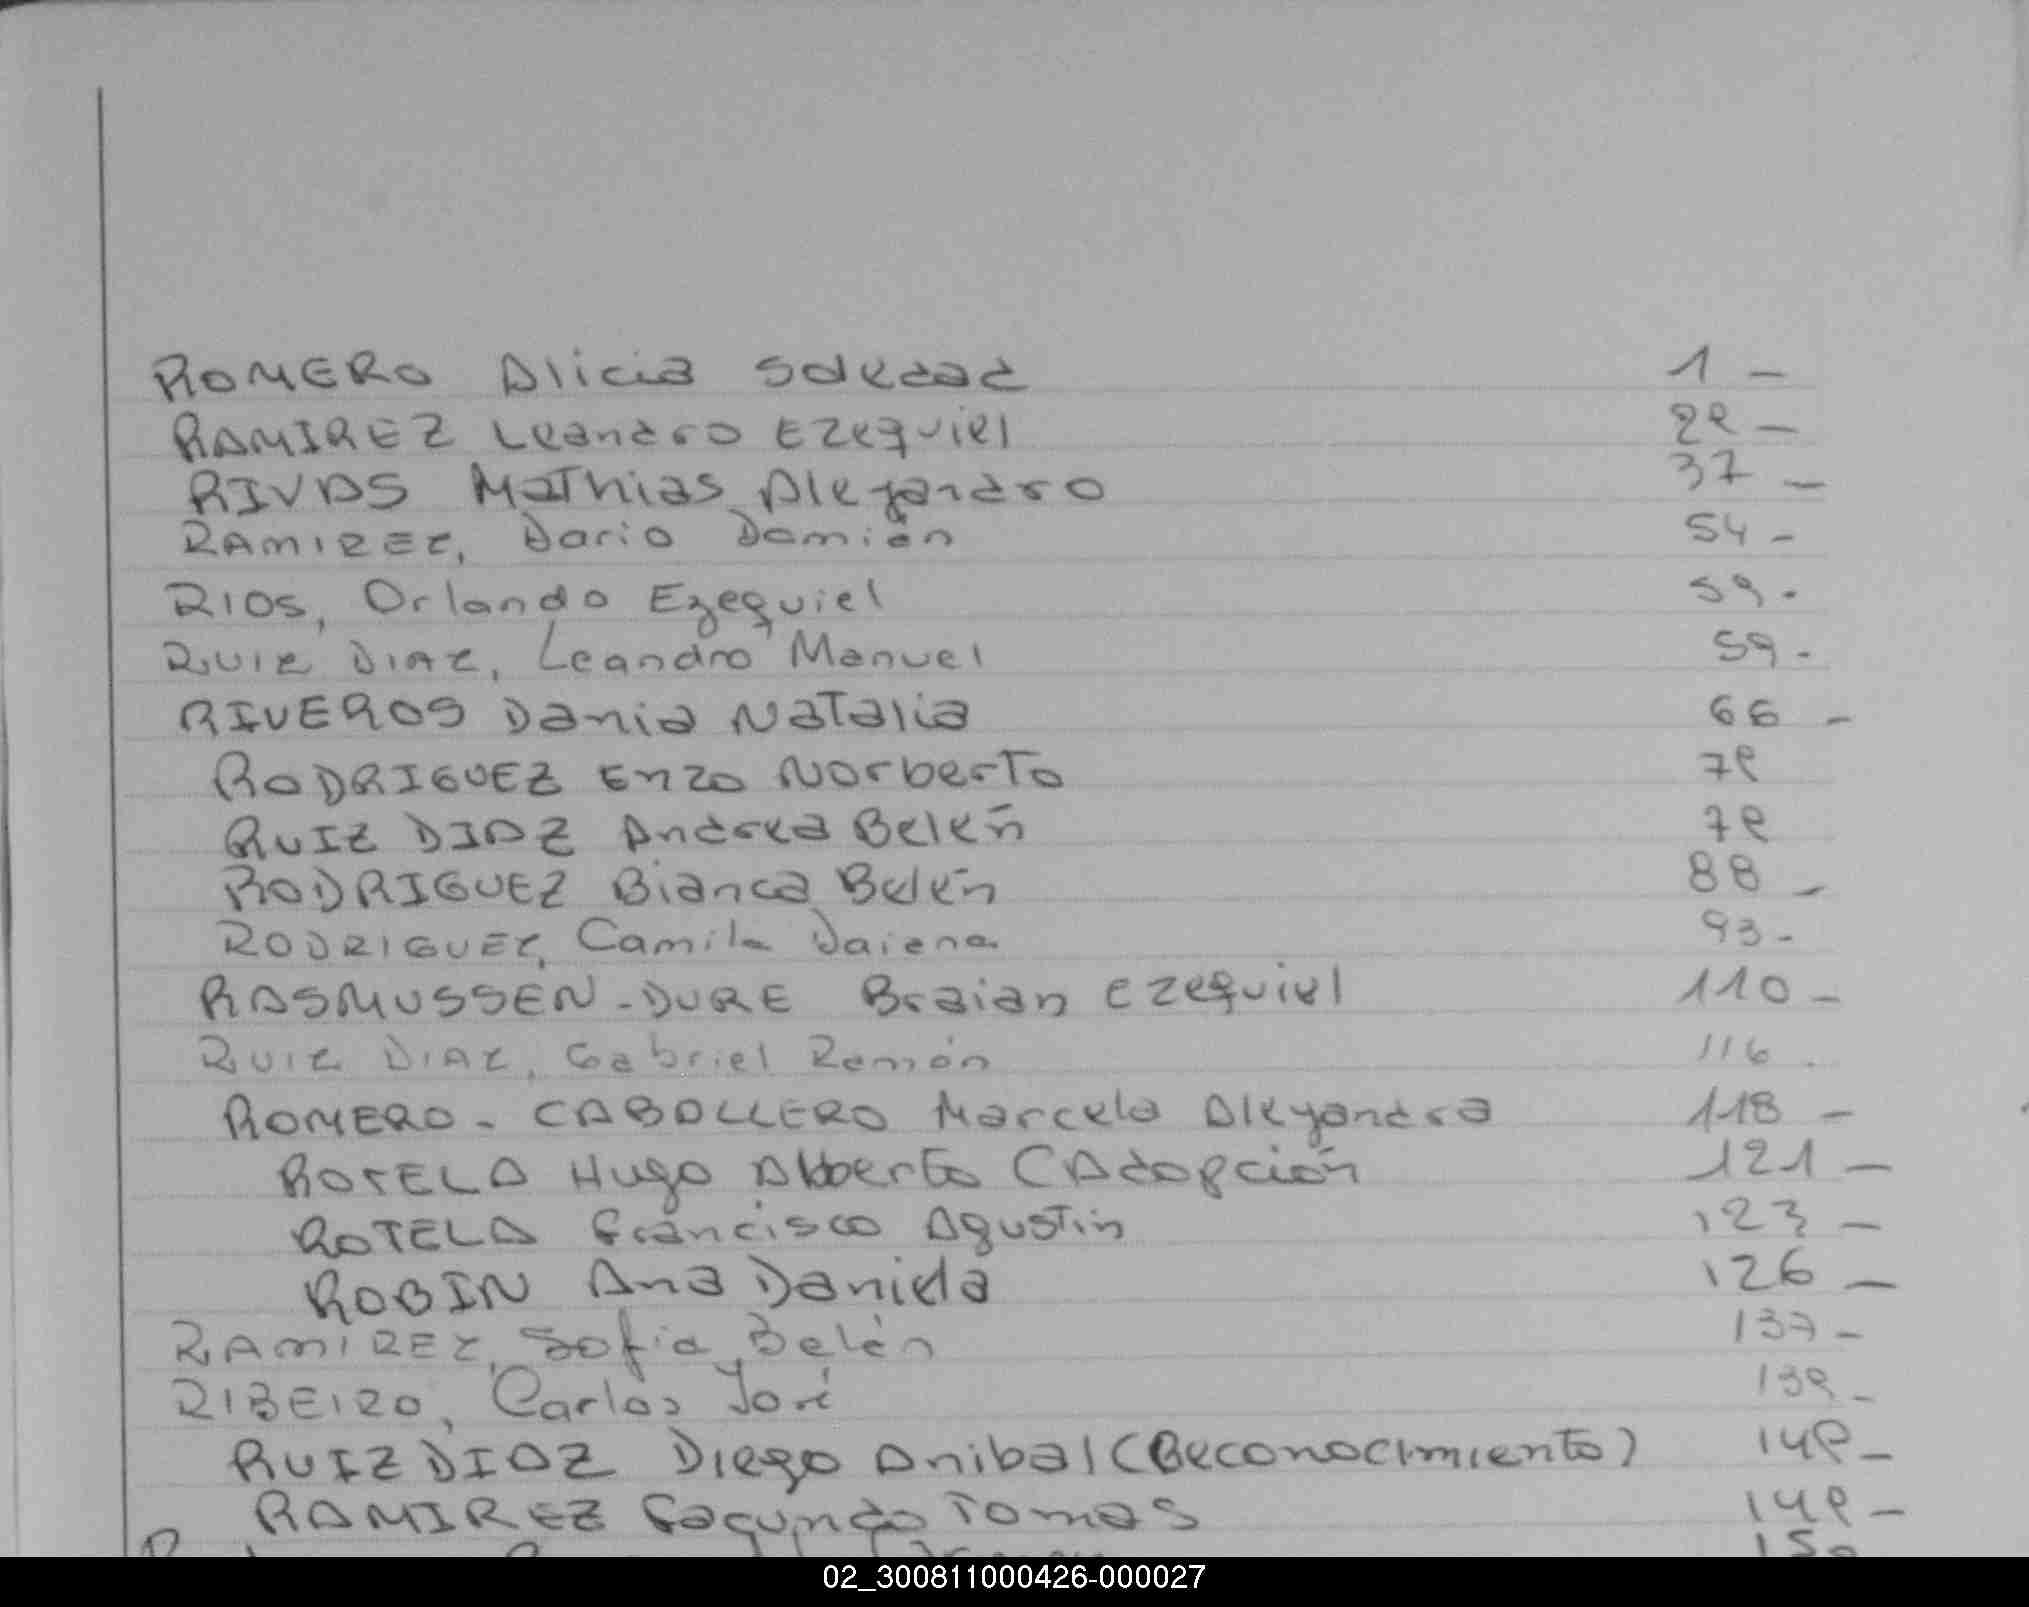 ROMERO Alicia Soledad 1 -
RAMIREZ Leandro Ezequiel 29 -
RIVAS Mathias Alejandro 37 -
RAMIREZ, Dario Damián 54 -
RIOS, Orlando Ezequiel 59 -
RUIZ DIAZ, Leandro Manuel 59 -
RIVEROS Dania Natalia 66 -
RODRIGUEZ Enzo Norberto 79
RUIZ DIAZ Andrea Belén 79
RODRIGUEZ Bianca Belén 88 -
RODRIGUEZ, Camila Daiana 93 -
RASMUSSEN - DURE Braian Ezequiel 110 -
RUIZ DIAZ, Gabriel Ramón 116 .
ROMERO - CABALLERO Marcela Alejandra 118 -
ROTELA Hugo Alberto (Adopción 121 -
ROTELA Francisco Agustin 123 -
ROBIN Ana Daniela 126 -
RAMIREZ, Sofia Belén 137 -
RIBEIRO, Carlos José 139 -
RUIZ DIAZ Diego Anibal (Reconocimiento) 149 -
RAMIREZ Facundo Tomas 149 -
02_300811000426-000027